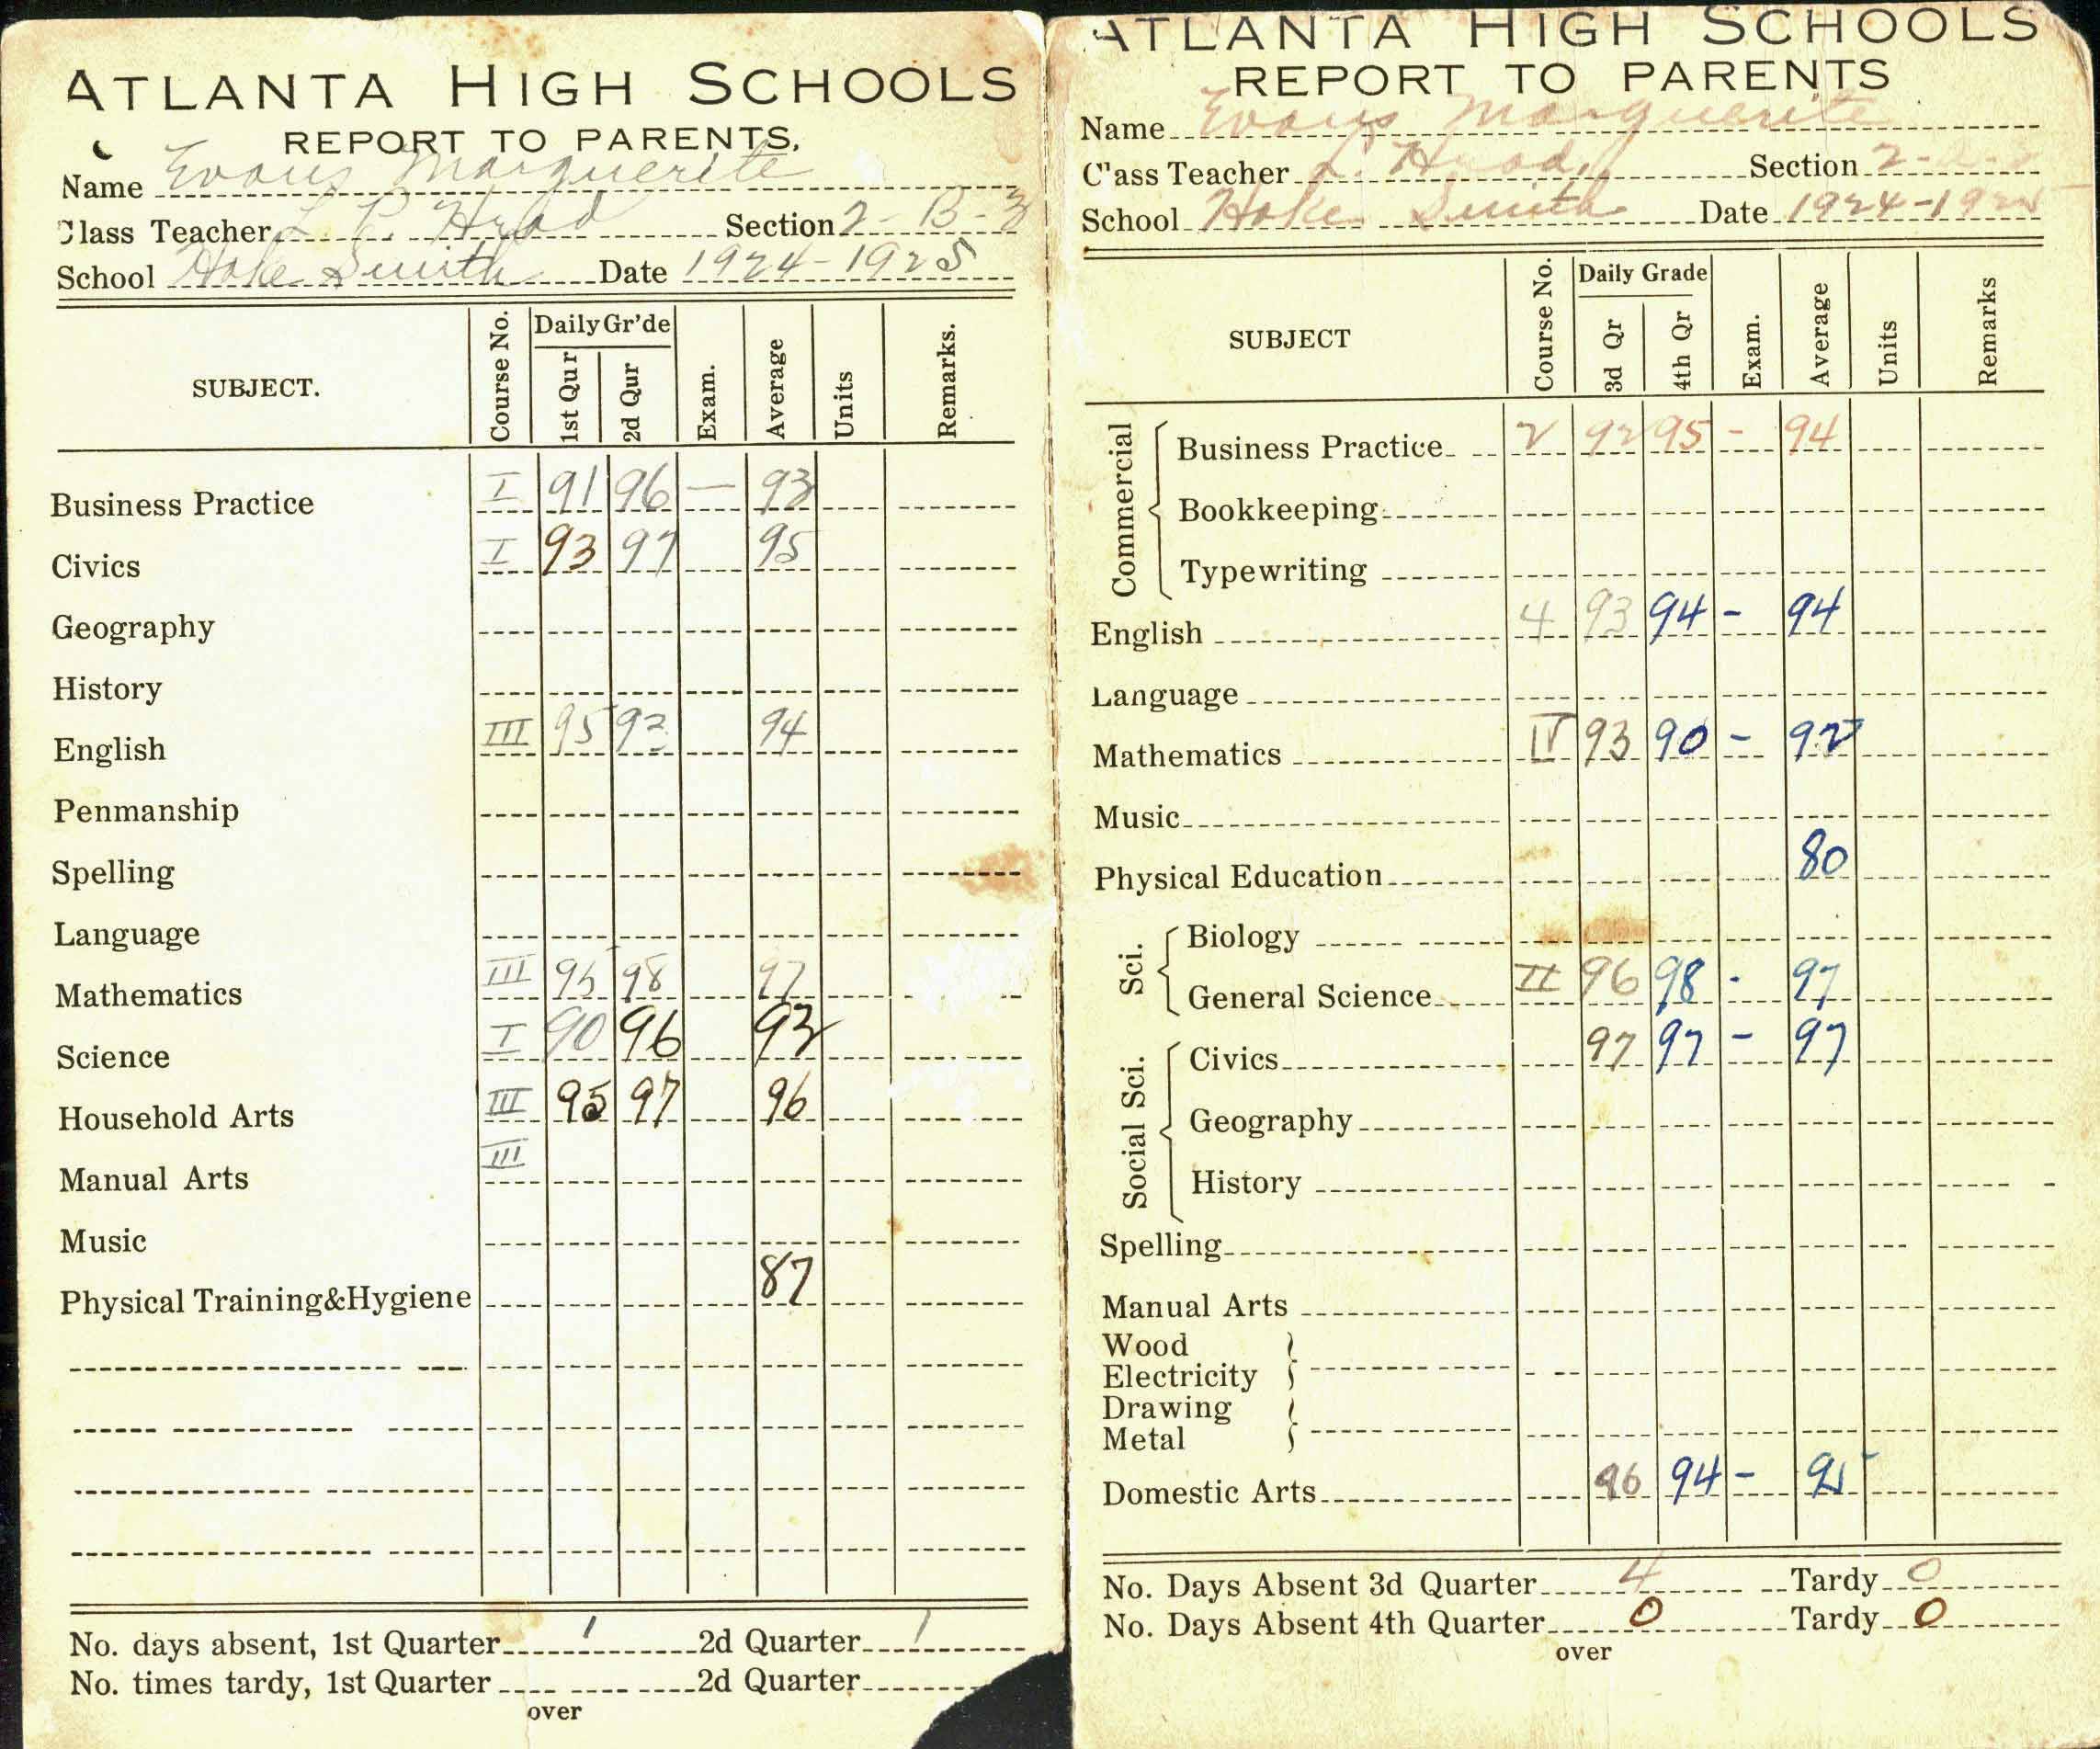 ATLANTA HIGH SCHOOLS
REPORT TO PARENTS.
Name Evans Marguerite
Class Teacher L P. Section 2-B-3
School Hoke Smith Date 1924-1925
SUBJECT. Course No. Daily Gr'de 1st Qur 2d Qur Exam. Average Units Remarks.
Business Practice I 91 96 — 93
Civics I 93 97 95
Geography
History
English III 95 93 94
Penmanship
Spelling
Language
Mathematics III 95 98 97
Science I 90 96 93
Household Arts III 95 97 96
Manual Arts III
Music
Physical Training&Hygiene 87
No. days absent, 1st Quarter 1 2d Quarter 1
No. times tardy, 1st Quarter 2d Quarter
over
ATLANTA HIGH SCHOOLS
REPORT TO PARENTS
Name Evans Marguerite
C'ass Teacher L. Section 2-
School Hoke Smith Date 1924-1925
SUBJECT Course No. Daily Grade 3d Qr 4th Qr Exam. Average Units Remarks
Commercial
Business Practice 2 92 95 - 94
Bookkeeping
Typewriting
English 4 93 94 - 94
Language
Mathematics IV 93 90 - 92
Music
Physical Education 80
Sci.
Biology
General Science II 96 98 - 97
Social Sci.
Civics 97 97 - 97
Geography
History
Spelling
Manual Arts
Wood
Electricity
Drawing
Metal
Domestic Arts 96 94 - 95
No. Days Absent 3d Quarter 4 Tardy 0
No. Days Absent 4th Quarter 0 Tardy 0
over